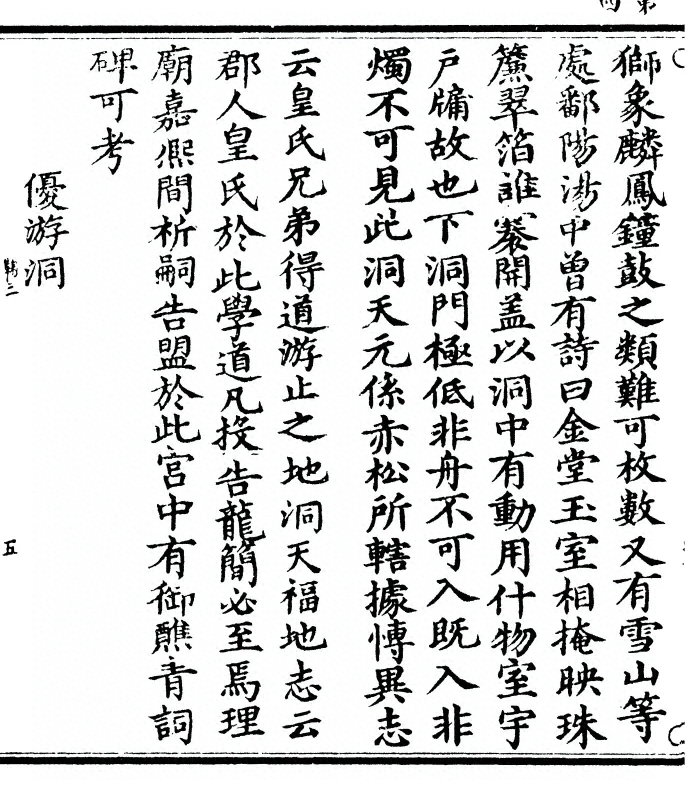 獅象麟鳳鐘鼓之類難可枚數又有雪山等
處鄱陽湯中曽有詩曰金堂玉室相掩映珠
簾翠箔誰褰開盖以洞中有動用什物室宇
戸牖故也下洞門極低非舟不可入既入非
燭不可見此洞天元係赤松所轄據慱異志
云皇氏兄弟得道游止之地洞天福地志云
郡人皇氏於此學道凡投告龍簡必至焉理
廟嘉熈間祈嗣告盟於此宮中有御醮青詞
碑可考
優游洞
五